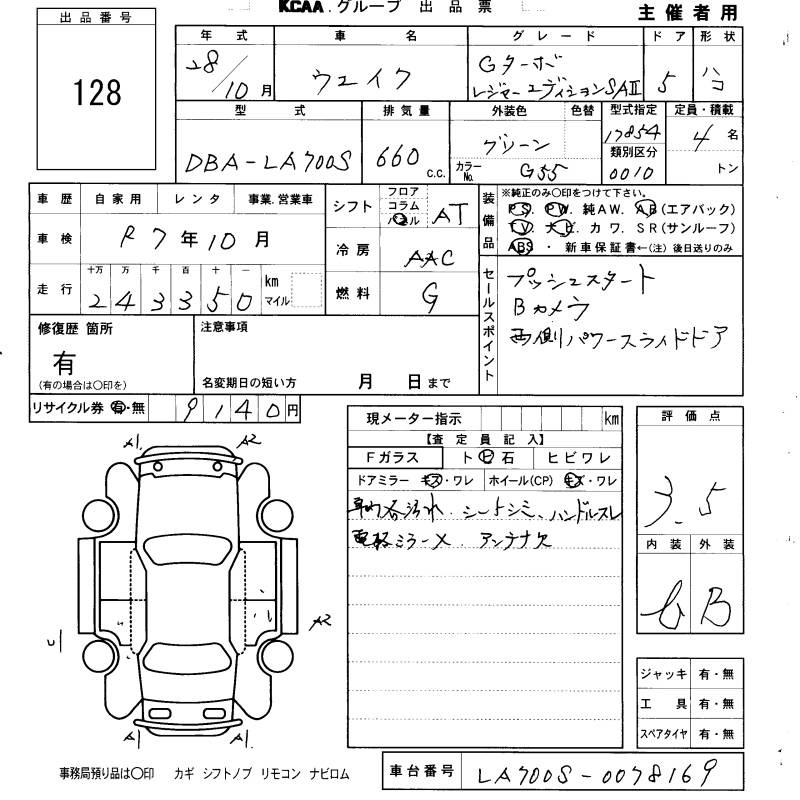 KCAA.グループ 出品票
主催者用
出品番号
128
年式 車名 グレード ドア 形状
28/10月 ウェイク Gターボ
レジャーエディションSAⅡ 5 ハコ
型式 排気量 外装色 色替 型式指定 定員・積載
DBA-LA700S 660 C.C. グリーン 17854 4名
類別区分
カラーNo. G55 0010 トン
車歴 自家用 レンタ 事業.営業車
車検 R7年10月
走行 十万 万 千 百 十 一 km マイル
243350
シフト フロア コラム パネル AT
冷房 AAC
燃料 G
装備品 ※純正のみ○印をつけて下さい。
PS. PW. 純AW. AB(エアバック)
TV. ナビ. カワ. SR(サンルーフ)
ABS・ 新車保証書←(注) 後日送りのみ
セールスポイント
プッシュスタート
Bカメラ
両側パワースライドドア
修復歴 箇所
有
(有の場合は○印を)
注意事項
名変期日の短い方 月 日まで
リサイクル券 有・無 9140円
現メーター指示 km
【査定員記入】
Fガラス ト ビ 石 ヒビワレ
ドアミラー キズ・ワレ ホイール(CP) キズ・ワレ
車内各汚れ.シートシミ、ハンドルスレ
電格ミラーメ.アンテナ欠
評価点
3.5
内装 外装
B
A1 A2
A2
U1
A1 A1
ジャッキ 有・無
工具 有・無
スペアタイヤ 有・無
事務局預り品は○印 カギ シフトノブ リモコン ナビロム
車台番号 LA700S-0078169